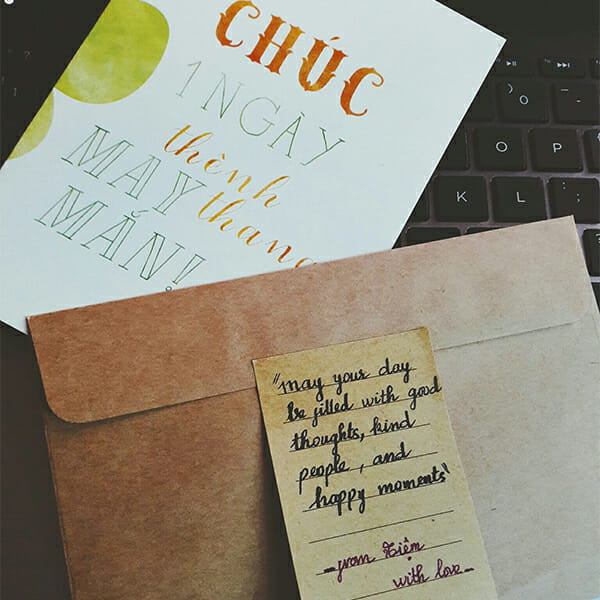 CHÚC
1 NGÀY
thênh
MAY thang
MẮN!
) 0 -
O P {
K L : ;
"may your day
be filled with good
thoughts, kind
people, and
happy moments"
- from Tiệm
with love -